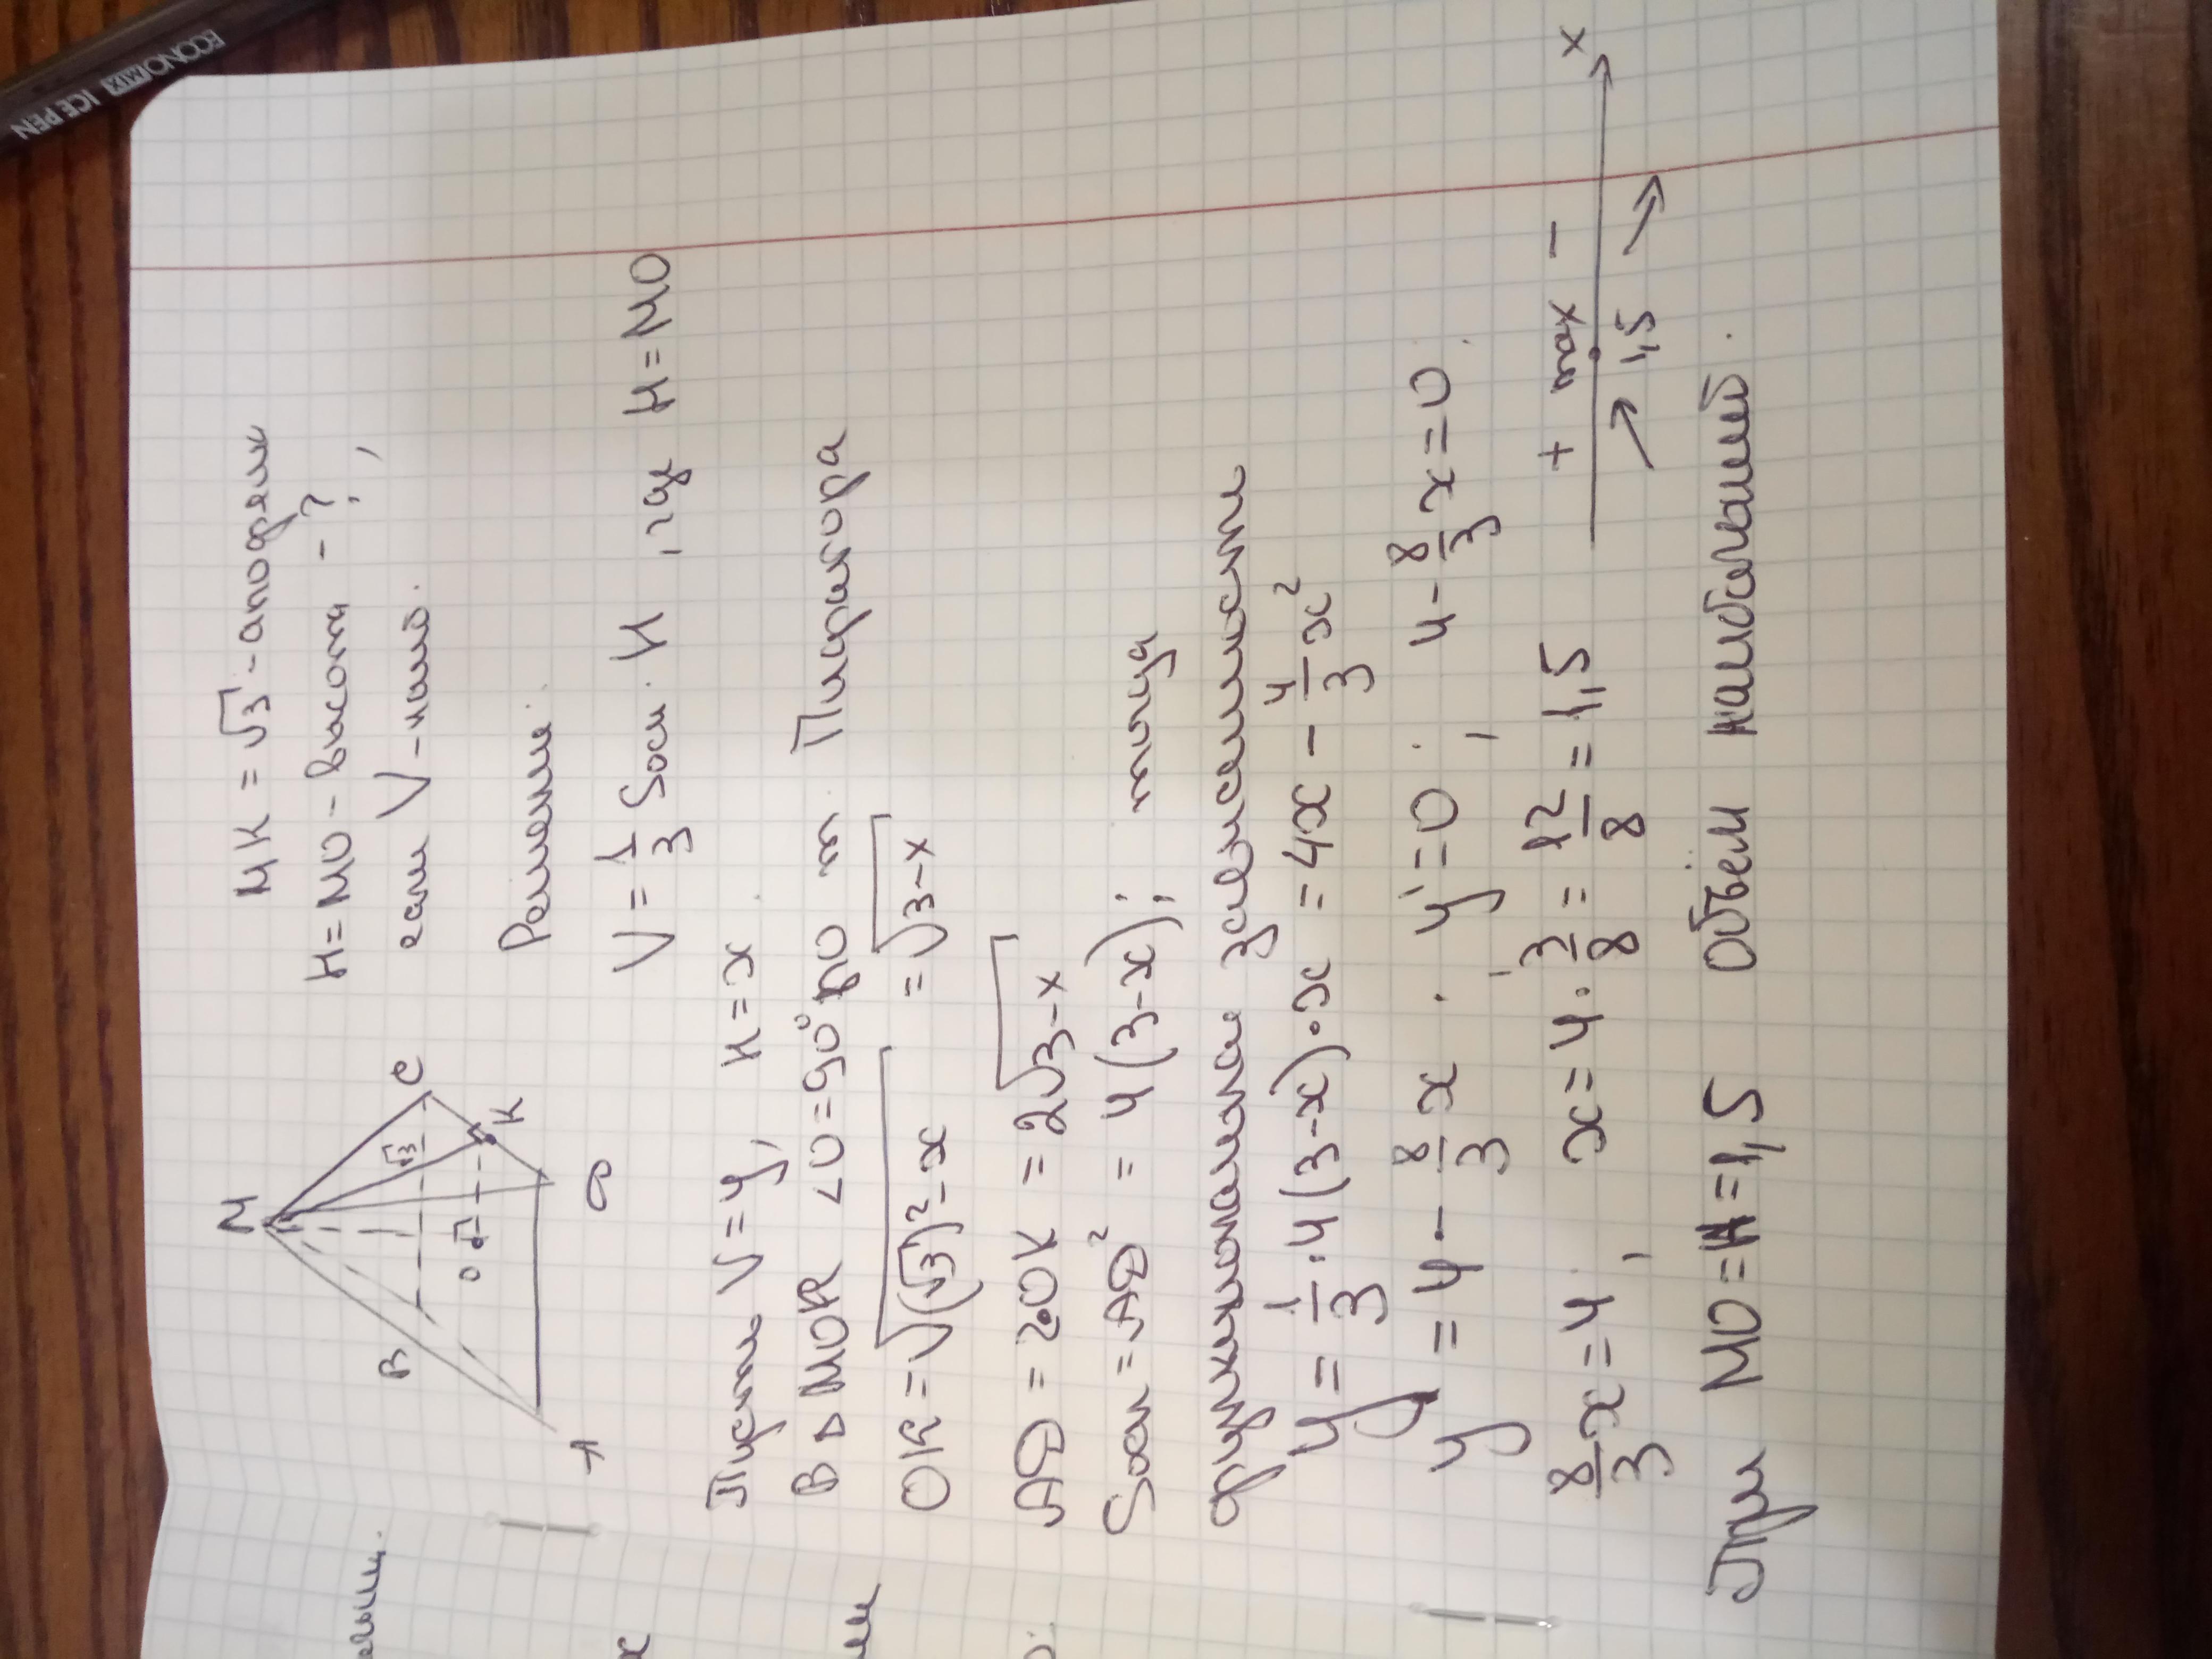 ECONOMIX ICE PEN
M
B
C
√3
K
O
A
D
MK = √3 - апофема
H = MO - высота - ?,
если V - наиб.
Решение:
V = 1/3 Sосн · H, где H = MO
Пусть V = y, H = x
В △ MOK ∠O = 90° по т. Пифагора
OK = √((√3)² - x) = √(3-x)
AD = 2·OK = 2√(3-x)
Sосн = AD² = 4(3-x); тогда
функциональная зависимость
y = 1/3 · 4(3-x)·x = 4x - 4/3 x²
y' = 4 - 8/3 x; y' = 0; 4 - 8/3 x = 0.
8/3 x = 4; x = 4 · 3/8 = 12/8 = 1,5
+ max - x
1,5
При MO = H = 1,5 объём наибольший.